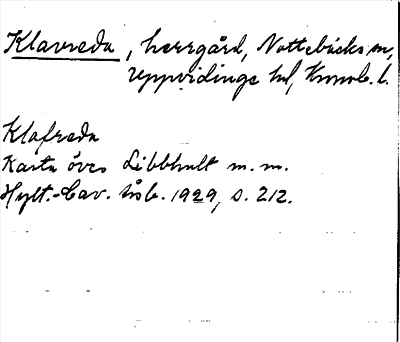 Klavreda, herrgård, Nottebäcks sn,
Uppvidinge hd, Kronob. l.
Klafreda
Karta över Libbhult m. m.
Hylt.-Cav. årsb. 1929, s. 212.